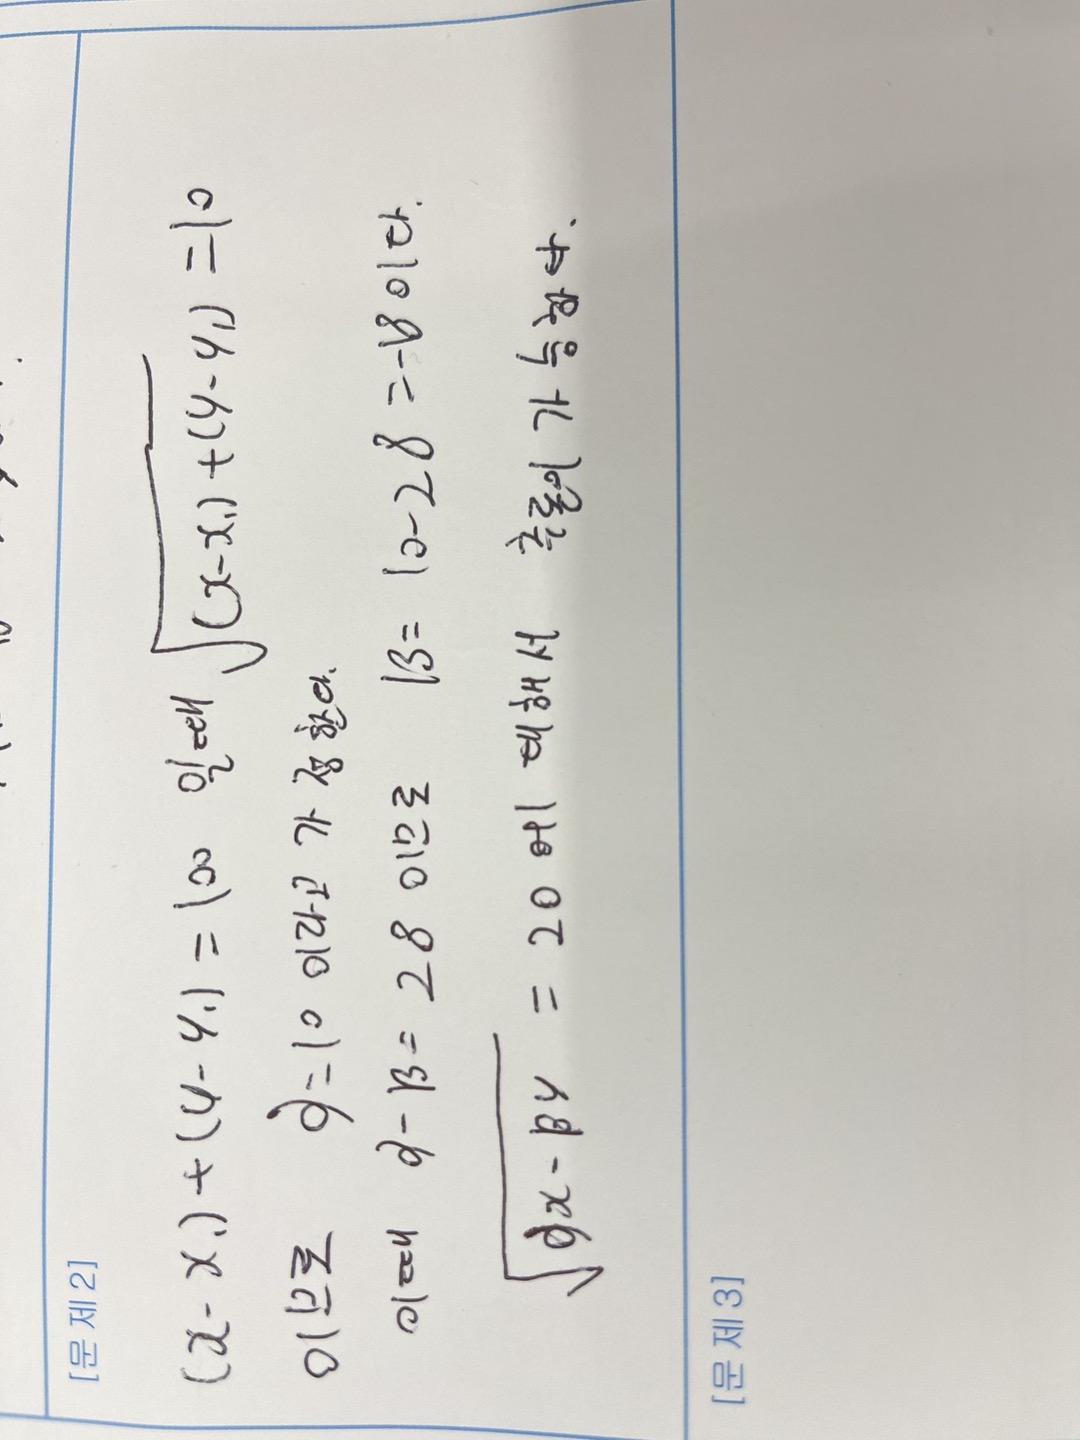 [문 제 2]
(x-x₁)+(y-y₁)=100 일때 √(x-x₁)+(y-y₁)=10
이므로 φ=10 이라고 가정한다.
이때 φ-β=28 이므로 β=10-28=-18이다.
√φx-βy =20 에 대해서
[문 제 3]